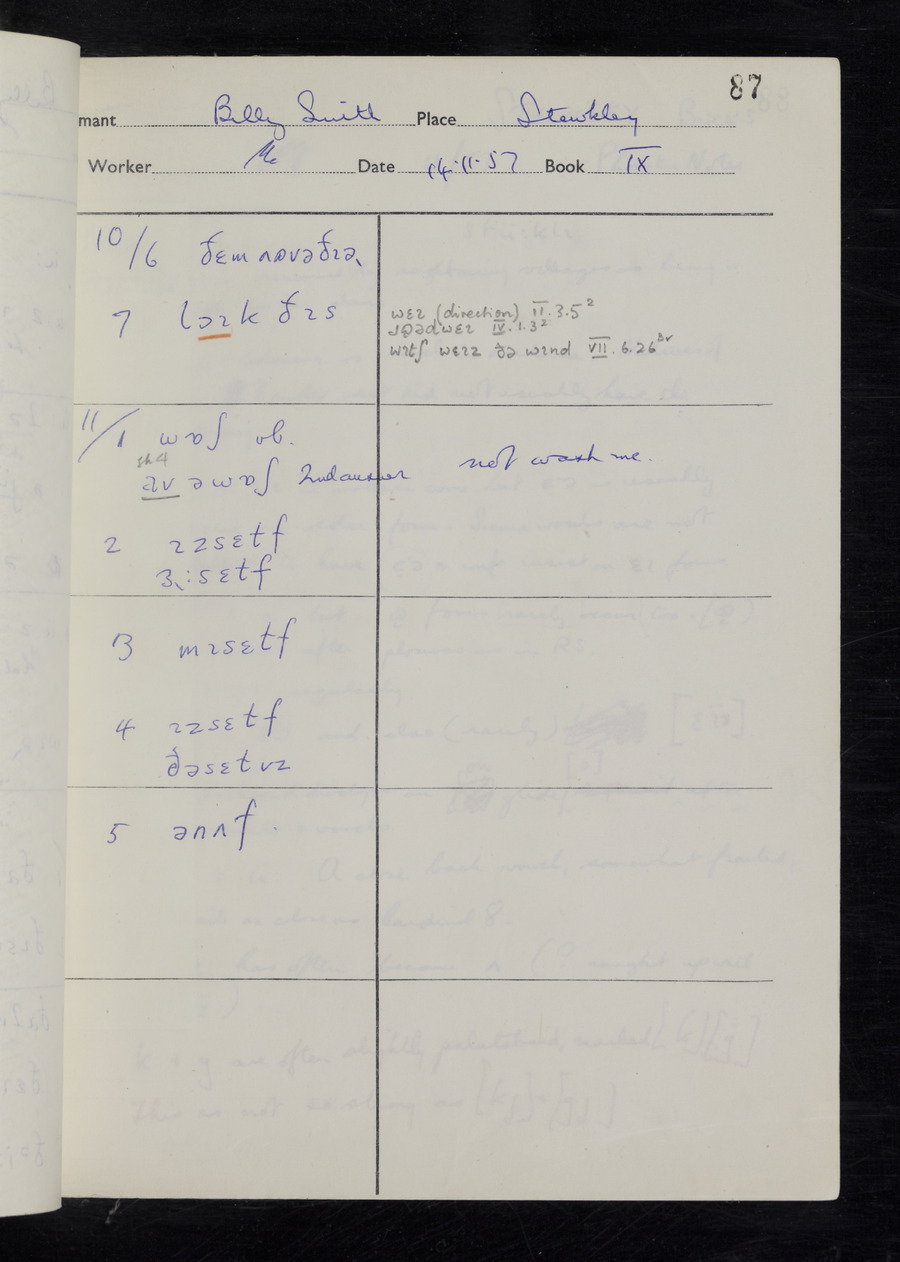 87
mant Billy Smith Place Stewkley
Worker Date 14.11.57 Book IX
10/6 ðɛm ʌɒvəðɪə˞
7 ləɪk ðɪs
wɛɪ (direction) II.3.5²
wɛɪ IV.1.3²
wɪtʃ wɛɪz ðə wɪnd VII.6.26
11/1 wɒʃ ob.
sh 4
əwɒʃ 2nd answer not wash me.
2 ɪzsɛtf
ɜ˞:sɛtf
3 mɪsɛtf
4 ɪzsɛtf
ðəsɛtvz
5 ənʌf.